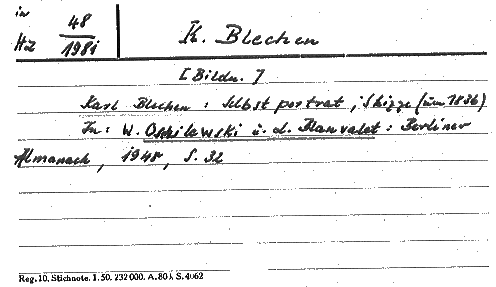 in
Hz 48/1981 K. Blechen
[Bildn.]
Karl Blechen : Selbstporträt, Skizze (um 1836)
In: W. Oschilewski u. L. Blanvalet : Berliner
Almanach, 1948, S. 32
Reg. 10. Stichnote. 1. 50. 232000. A. 80 k S. 4062